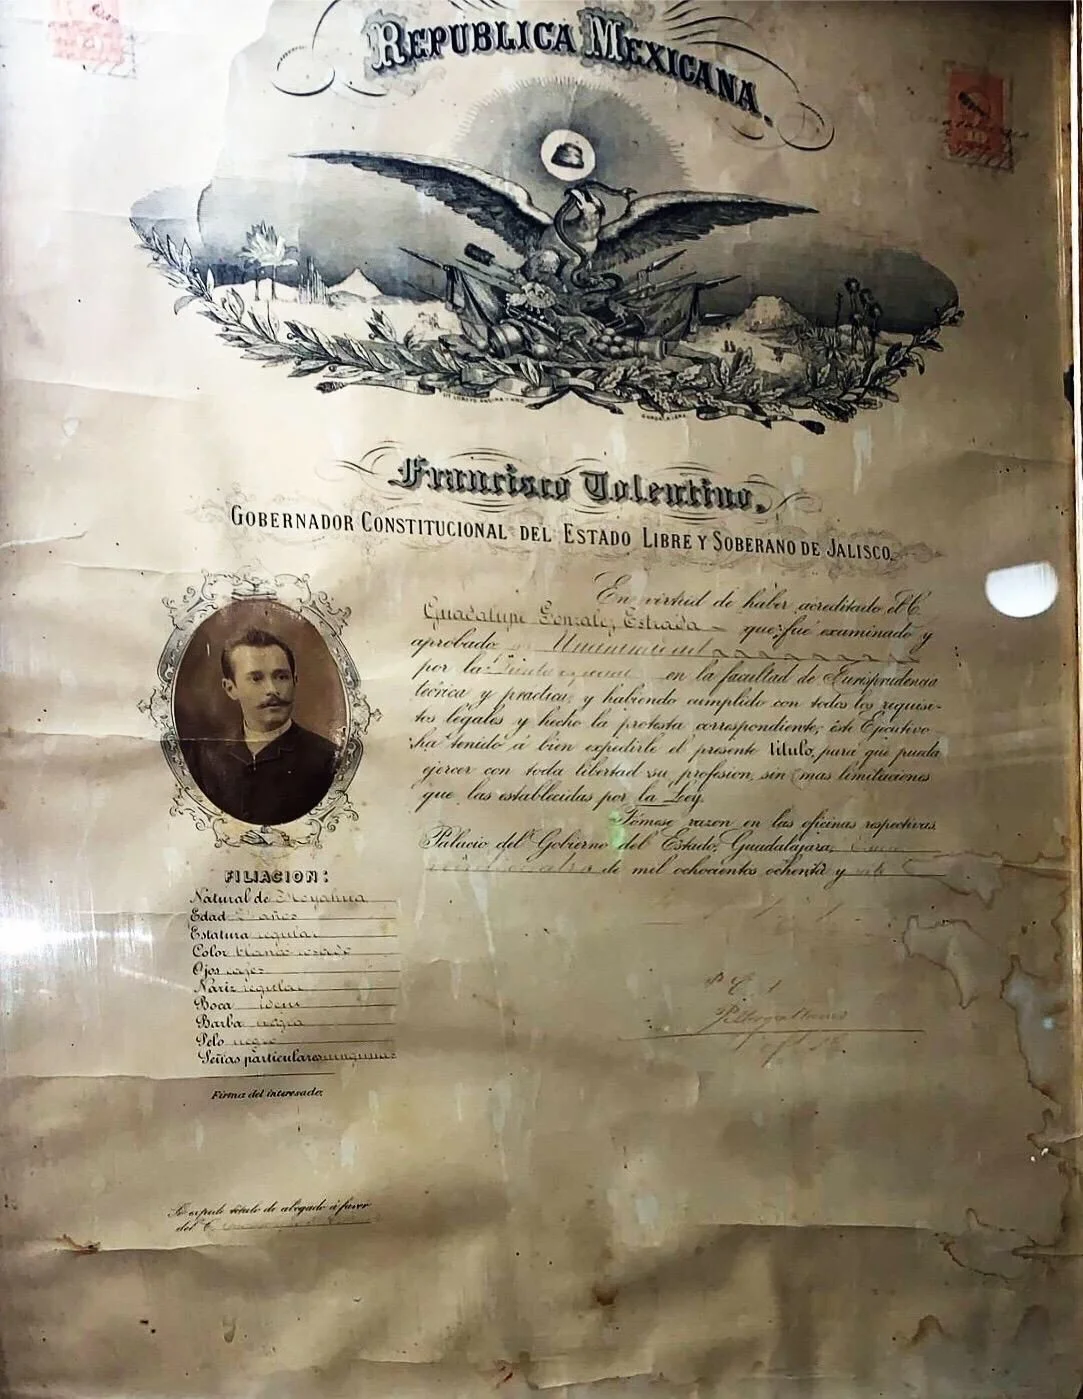 REPUBLICA MEXICANA.
GUADALAJARA
Francisco Tolentino,
GOBERNADOR CONSTITUCIONAL DEL ESTADO LIBRE Y SOBERANO DE JALISCO,
En virtud de haber acreditado el C.
Guadalupe Gonzalez Estrada que fué examinado y
aprobado
por la en la facultad de Jurisprudencia
teórica y practica, y habiendo cumplido con todos los requisi-
tos legales y hecho la protesta correspondiente, éste Ejecutivo
ha tenido á bien expedirle el presente titulo, para que pueda
ejercer con toda libertad su profesion, sin mas limitaciones
que las establecidas por la Ley.
Tómese razon en las oficinas respectivas.
Palacio del Gobierno del Estado, Guadalajara,
de mil ochocientos ochenta y
FILIACION:
Natural de Moyahua
Edad años
Estatura regular
Color blanco rosado
Ojos cafes
Nariz regular
Boca idem
Barba negra
Pelo negro
Señas particulares ningunas
Firma del interesado.
Se expide titulo de abogado á favor
del C.